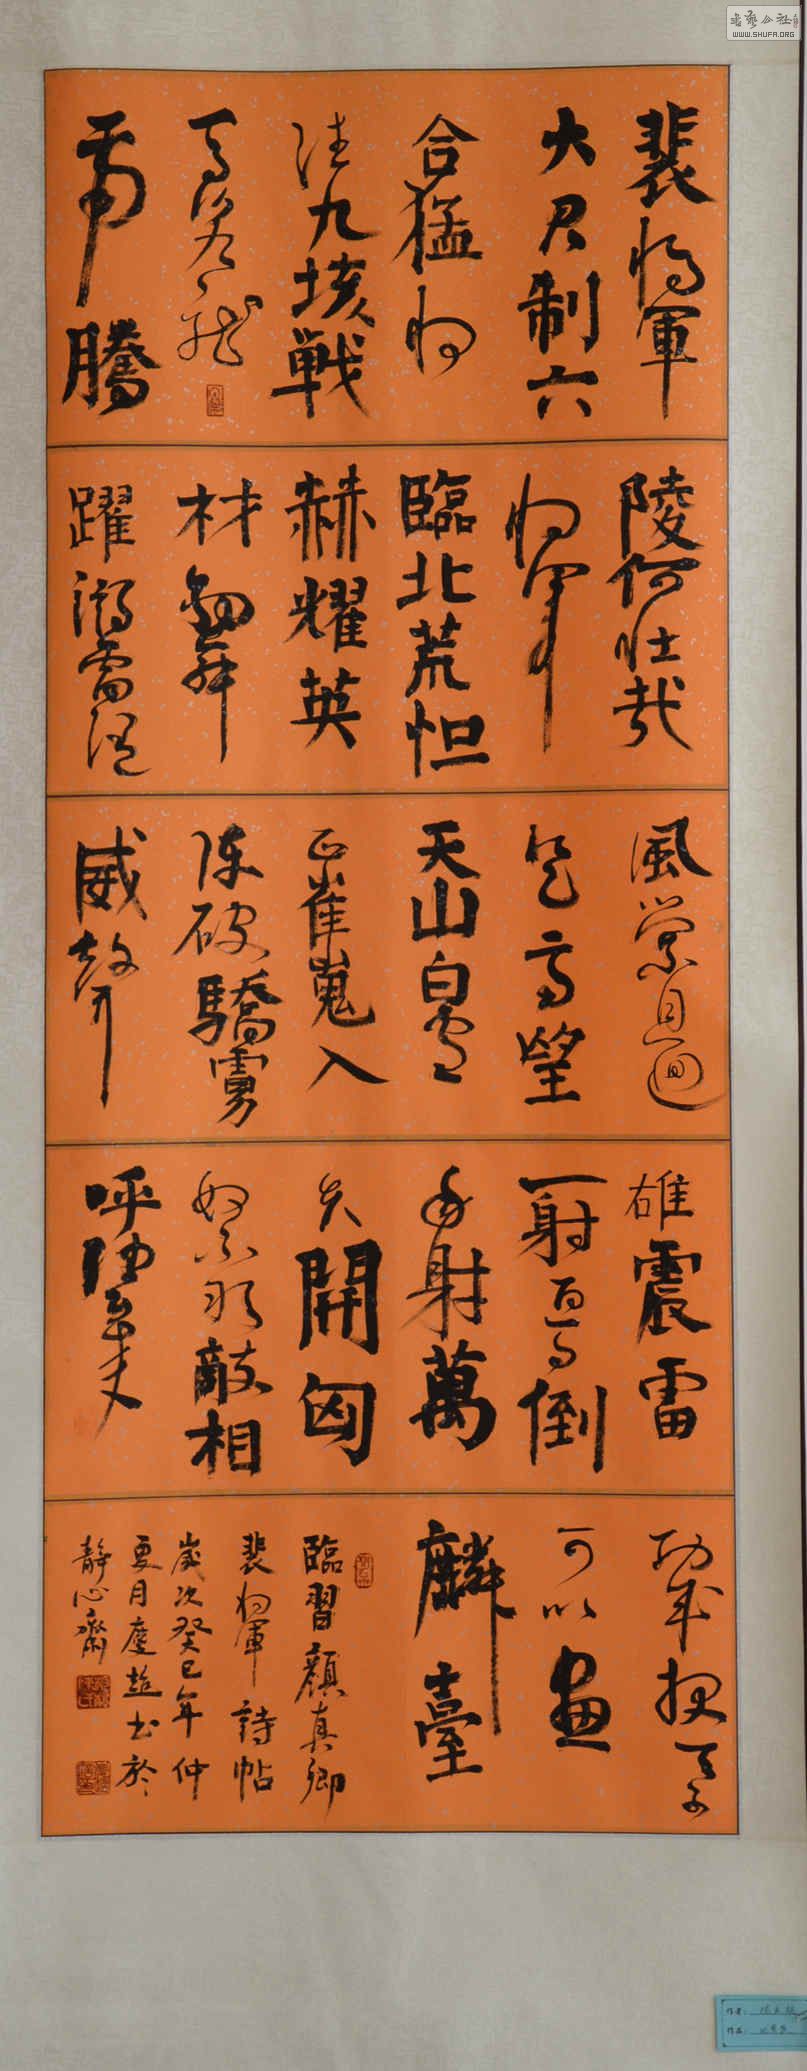 裴將軍
大君制六
合猛將
清九垓戰
馬若龍
虎騰
陵何壯哉
將軍
臨北荒怛
赫耀英
材劍舞
躍游雷隨
風縈且迴
登高望
天山白雲
正崔嵬入
陣破驕虜
威聲
雄震雷
一射百馬倒
再射萬
夫開匈
奴不敢敵相
呼歸去來
功成報天子
可以畫
麟臺
臨習顏真卿
裴將軍詩帖
歲次癸巳年仲
夏月慶書於
靜心齋
书艺公社
WWW.SHUFA.ORG
作者:
作品: